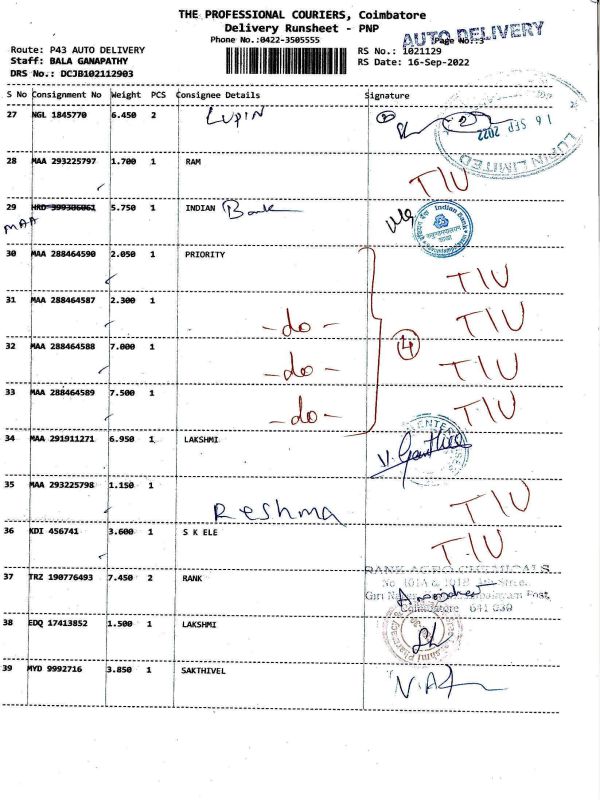 THE PROFESSIONAL COURIERS, Coimbatore
Delivery Runsheet - PNP
AUTO DELIVERY
Phone No.:0422-3505555
Page No.:3
Route: P43 AUTO DELIVERY
RS No.: 1021129
Staff: BALA GANAPATHY
RS Date: 16-Sep-2022
DRS No.: DCJB102112903
S No Consignment No Weight PCS Consignee Details Signature
27 NGL 1845770 6.450 2 LUPIN
16 SEP 2022
LUPIN LIMITED
28 MAA 293225797 1.700 1 RAM TIU
29 HRD 399306061 5.750 1 INDIAN Bank
MAA
Indian Bank
30 MAA 288464590 2.050 1 PRIORITY TIU
31 MAA 288464587 2.300 1 -do- TIU
4
32 MAA 288464588 7.000 1 -do- TIU
33 MAA 288464589 7.500 1 -do- TIU
34 MAA 291911271 6.950 1 LAKSHMI
35 MAA 293225798 1.150 1 Reshma TIU
36 KDI 456741 3.600 1 S K ELE TIU
37 TRZ 190776493 7.450 2 RANK
RANK AGRO CHEMICALS
No 101A & 101B
Coimbatore 641 030
38 EDQ 17413852 1.500 1 LAKSHMI
39 MYD 9992716 3.850 1 SAKTHIVEL